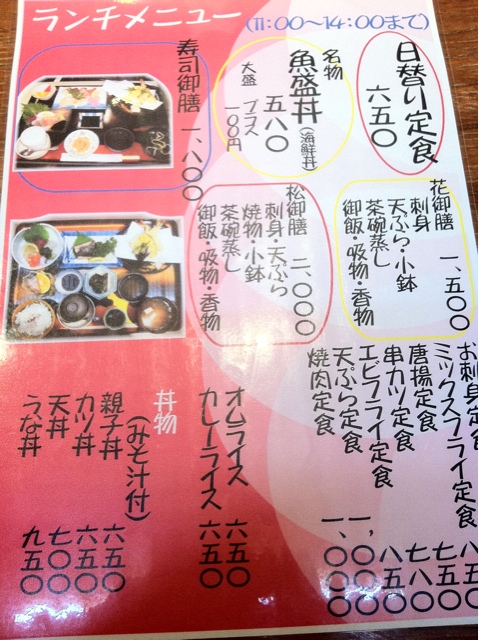 ランチメニュー (11:00〜14:00まで)
日替り定食
六五〇
名物
魚盛丼(海鮮丼)
五八〇
大盛 プラス
一〇〇円
寿司御膳 一、八〇〇
花御膳 一、五〇〇
刺身
天ぷら・小鉢
茶碗蒸し
御飯・吸物・香物
松御膳 二、〇〇〇
刺身・天ぷら
焼物・小鉢
茶碗蒸し
御飯・吸物・香物
お刺身定食
ミックスフライ定食 八五〇
唐揚定食 七五〇
串カツ定食 七八〇
エビフライ定食 八五〇
天ぷら定食 一、〇〇〇
焼肉定食 一、〇〇〇
オムライス 六五〇
カレーライス 六五〇
丼物
(みそ汁付)
親子丼 六五〇
カツ丼 六五〇
天丼 七〇〇
うな丼 九五〇